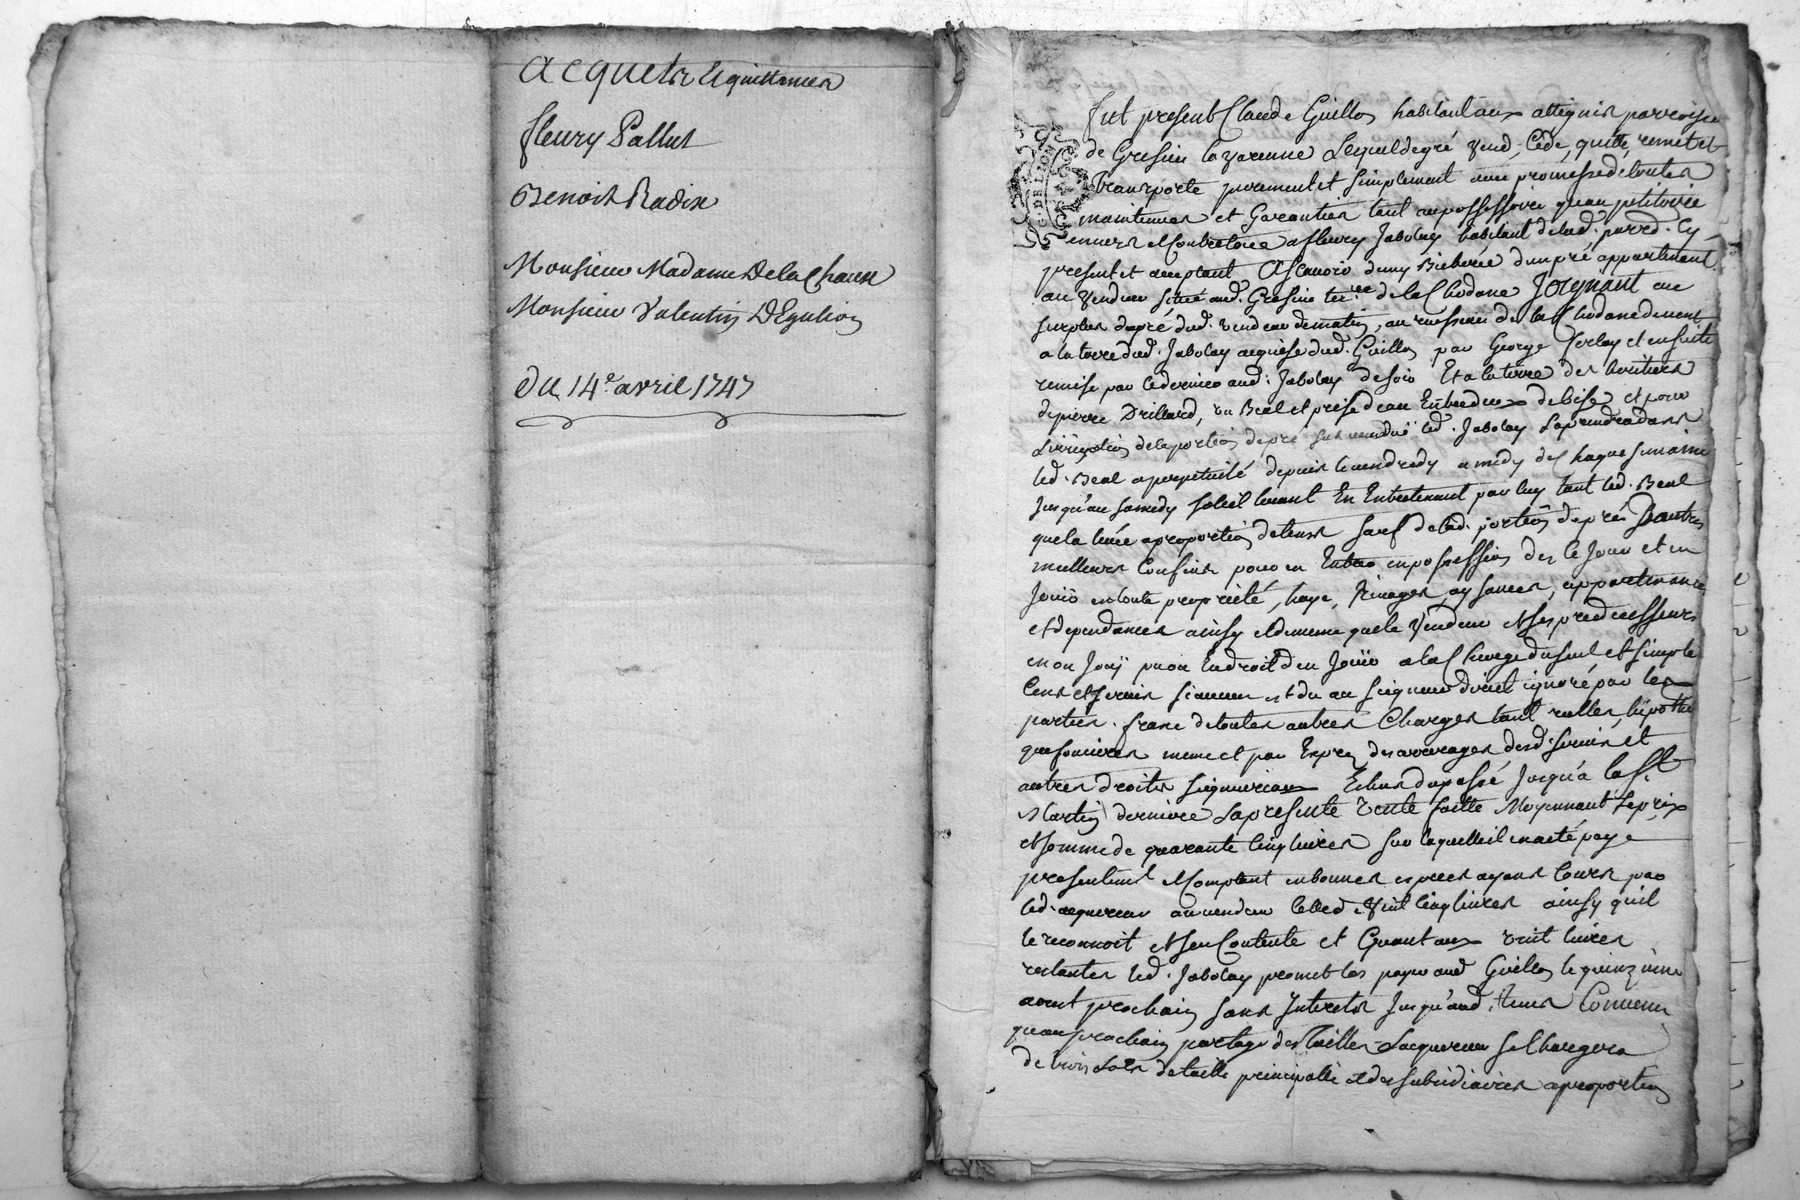 Acquets et quittances
fleury Pallut
Benoist Radix
Monsieur Madame De la Chaux
Monsieur Valentin D'Egulion
du 14e avril 1747
fut present Claude Guillon habitant aux attignies parroisse
de Gresieu la varenne Lequel de gré vend, Cede, quitte, remet et
transporte purement et simplement avec promesse de toutes
maintenues et Garanties tant au possessoire qu'au petitoire
envers et contre tous a fleury Jabolay habitant de lad. parr. Cy
present et acceptant Ascavoir d'une Bicherée d'un pré appartenant
au vendeur situé aud. Gresieu terre de la Chodane Joignant au
surplus du pré dud. vendeur de matin, au ruisseau de la Chodane de vent
a la terre dud. Jabolay acquise dud. Guillon par George et ensuite
remise par ce dernier aud. Jabolay de soir Et a la terre des heritiers
de pierre Drillard, un Beal et prise d'eau Entredeux de bise et pour
L'irrigation de la portion de pré sus vendüe led. Jabolay La prendra dans
led. Beal a perpetuité depuis le vendredy a midy de Chaque semaine
Jusqu'au samedy soleil levant En Entretenant par luy tant led. Beal
que la levée a proportion de tems sauf de lad. portion de pré D'autres
meilleurs Confins pour en Entrer en possession des ce Jour et en
Joüir en toute propriété, haye, aysances, appartenances
et dependances ainsy et de meme que le vendeur et ses predecesseurs
en on Joüy pu ou du droit d'en Joüir a la Charge du seul et simple
Cens et servis si aucun est du au seigneur direct ignoré par les
parties. franc de toutes autres Charges tant reelles, hipothe
que foncieres meme et par Exprez des arrerages desd. servis et
autres droits seigneuriaux Echus du passé Jusqu'a la St
Martin derniere La presente vente faitte Moyennant Le prix
et somme de quarante Cinq livres sur laquelle il en a eté payé
presentement et Comptant en bonnes especes ayant Cours par
led. acquereur au vendeur celle de vint Cinq livres ainsy qu'il
le reconnoit et s'en Contente et Quant aux vint livres
restantes led. Jabolay promet les payer aud. Guillon le quinzieme
aout prochain sans Interets Jusqu'aud. tems Convenu
qu'au prochain partage des tailles L'acquereur se Chargera
de trois sols de taille principalle et des subsidiaires a proportion